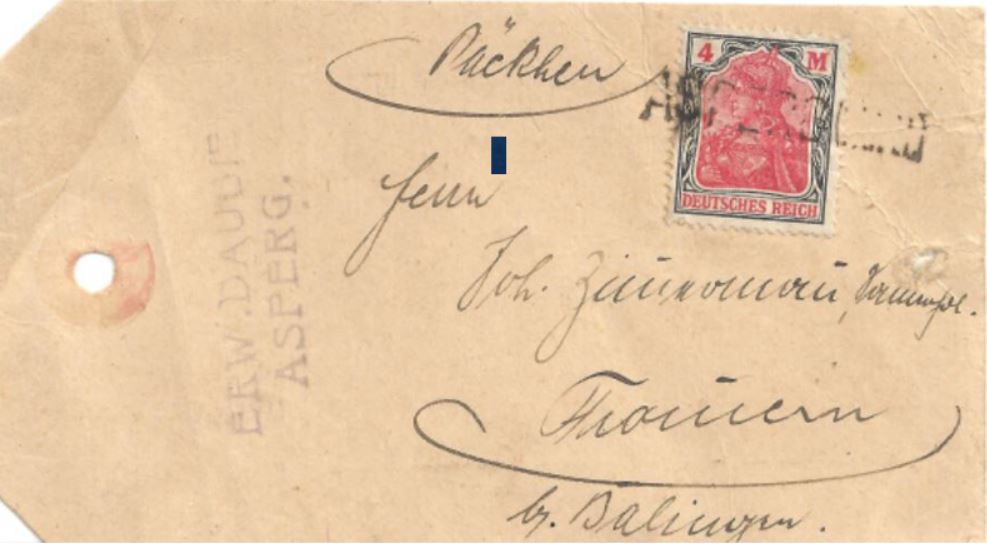 Päckchen
4 M
DEUTSCHES REICH
Herrn
Joh. Zim̄erman̄,
From̄ern
b. Balingen.
ERW.
ASPERG.